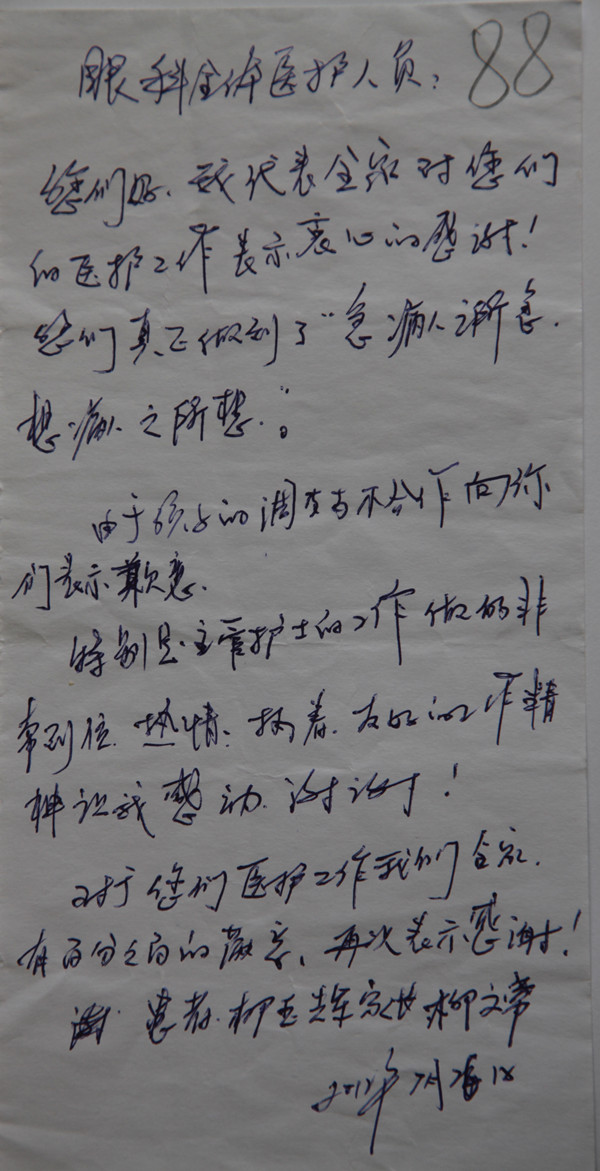 88
眼科全体医护人员:
您们好.我代表全家对您们
的医护工作表示衷心的感谢!
您们真正做到了“急病人之所急.
想病人之所想.”。
由于孩子的调皮与不合作向你
们表示歉意.
特别是主管护士的工作做的非
常到位.热情.执着.友好的工作精
神让我感动.谢谢!
对于您们医护工作我们全家.
有百分之百的满意、再次表示感谢!
患者.柳玉 家长 柳文
2012年7月